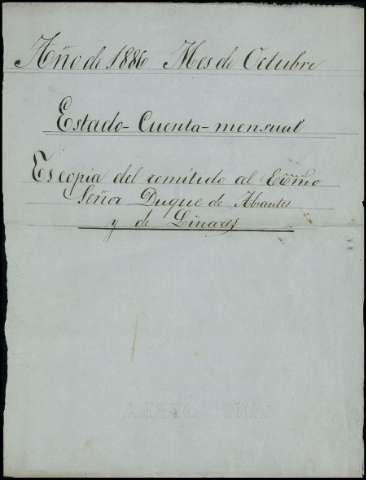 Año de 1886 Mes de Octubre
Estado-Cuenta-mensual
Es copia del remitido al Exmo
Señor Duque de Abrantes
y de Linares